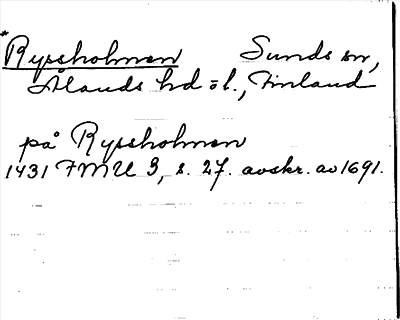 *Ryssholmen Sunds sn,
Ålands hd o l., Finland
på Ryssholmen
1431 FMU 3, s. 27. avskr. av 1691.